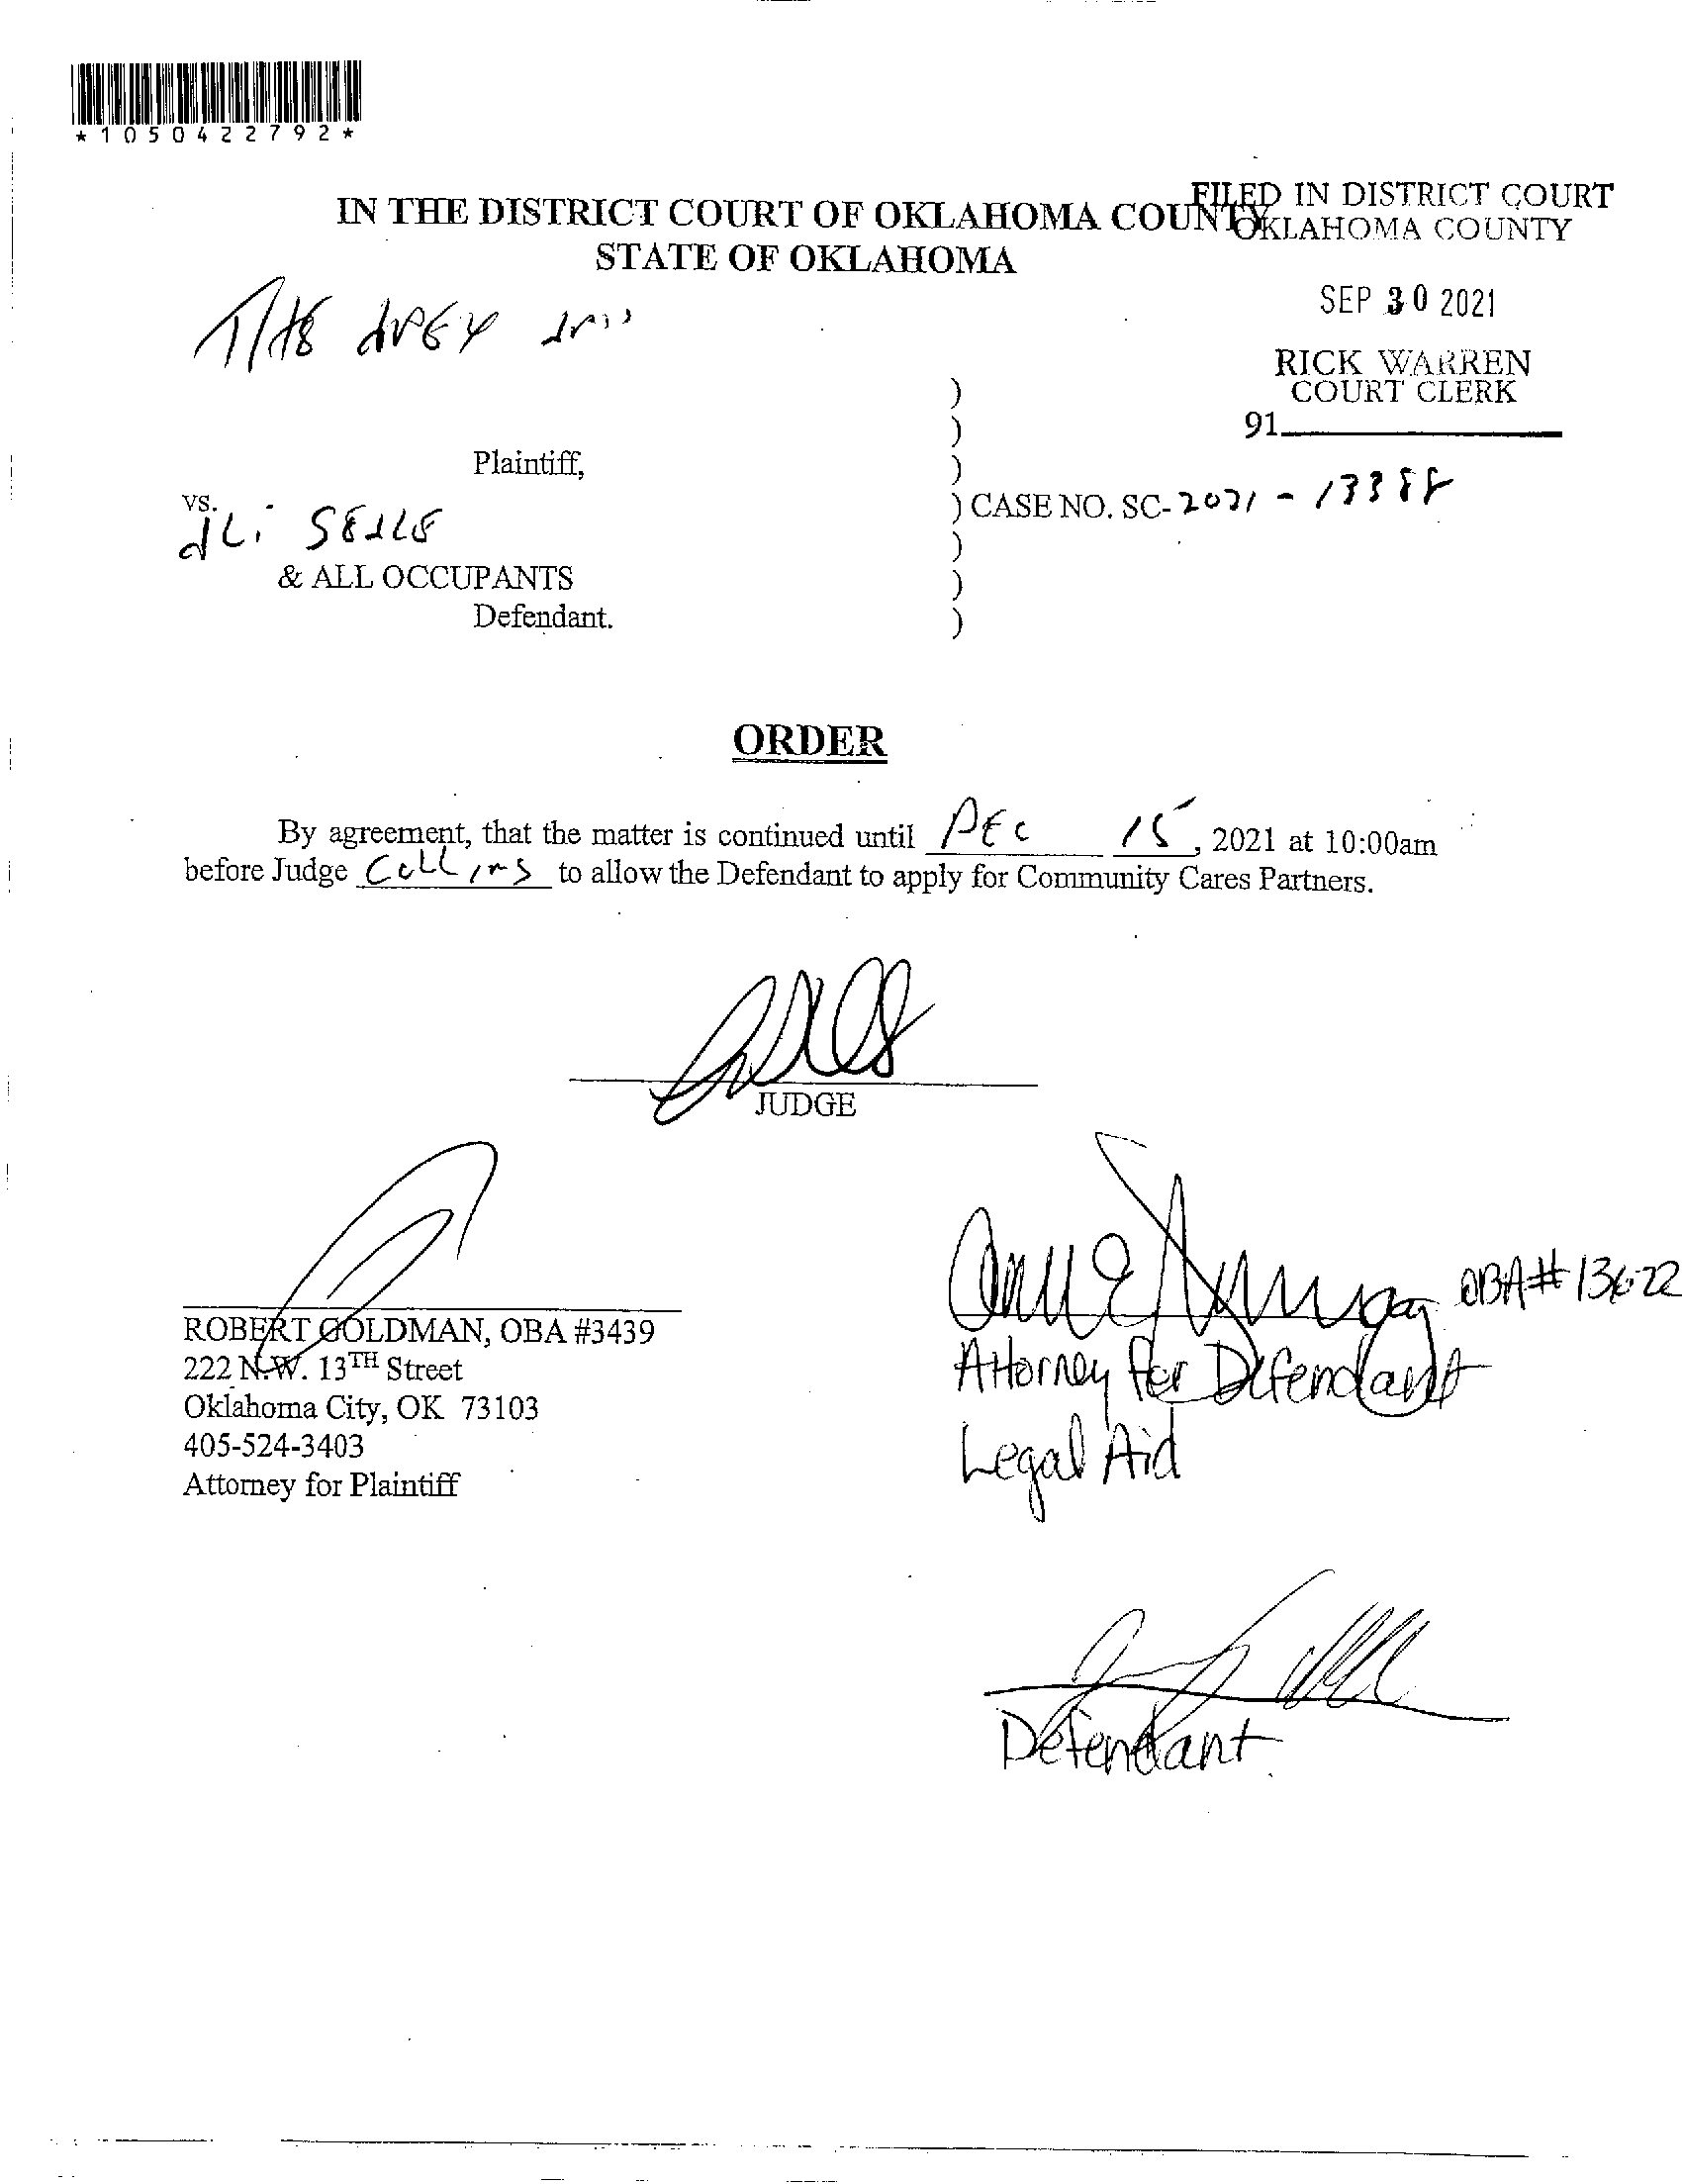 *1050422792*
IN THE DISTRICT COURT OF OKLAHOMA COUNTY
STATE OF OKLAHOMA
FILED IN DISTRICT COURT
OKLAHOMA COUNTY
SEP 30 2021
RICK WARREN
COURT CLERK
91
Plaintiff,
vs.
ALi
& ALL OCCUPANTS
Defendant.
)
)
)
) CASE NO. SC-2021 - 13388
)
)
)
ORDER
By agreement, that the matter is continued until DEC 15, 2021 at 10:00am
before Judge COLLINS to allow the Defendant to apply for Community Cares Partners.
JUDGE
ROBERT GOLDMAN, OBA #3439
222 N.W. 13TH Street
Oklahoma City, OK 73103
405-524-3403
Attorney for Plaintiff
OBA# 13622
Attorney for Defendant
Legal Aid
Defendant